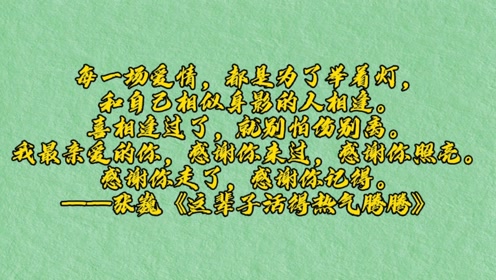 每一场爱情，都是为了举着灯，
和自己相似身影的人相逢。
喜相逢过了，就别怕伤别离。
我最亲爱的你，感谢你来过，感谢你照亮。
感谢你走了，感谢你记得。
——张巍《这辈子活得热气腾腾》